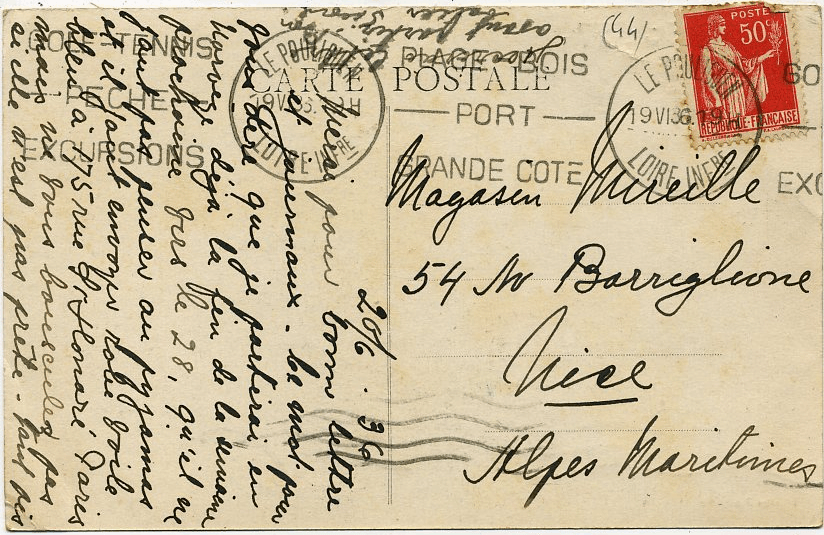 (44)
POSTES
50c
REPUBLIQUE FRANÇAISE
CARTE POSTALE
GOLF-TENNIS
PÊCHE
EXCURSIONS
LE POULIGUEN
19 VI 36
LOIRE INFRE
PLAGE BOIS
PORT
GRANDE COTE
LE POULIGUEN
19 VI 36
LOIRE INFRE
GO
EXC
Magasin Mireille
54 Av Borriglione
Nice
Alpes Maritimes
20/6. 36
Merci pour bonne lettre
et journaux. Ce mot pour
vous dire que je partirai en
Norvège déjà la fin de la semaine
prochaine vers le 28, qu'il ne
faut pas penser au pyjamas
et il faut envoyer robe voile
bleu à 175 rue St Honoré Paris
mais ne vous bousculez pas
si elle n'est pas prête. Tant pis